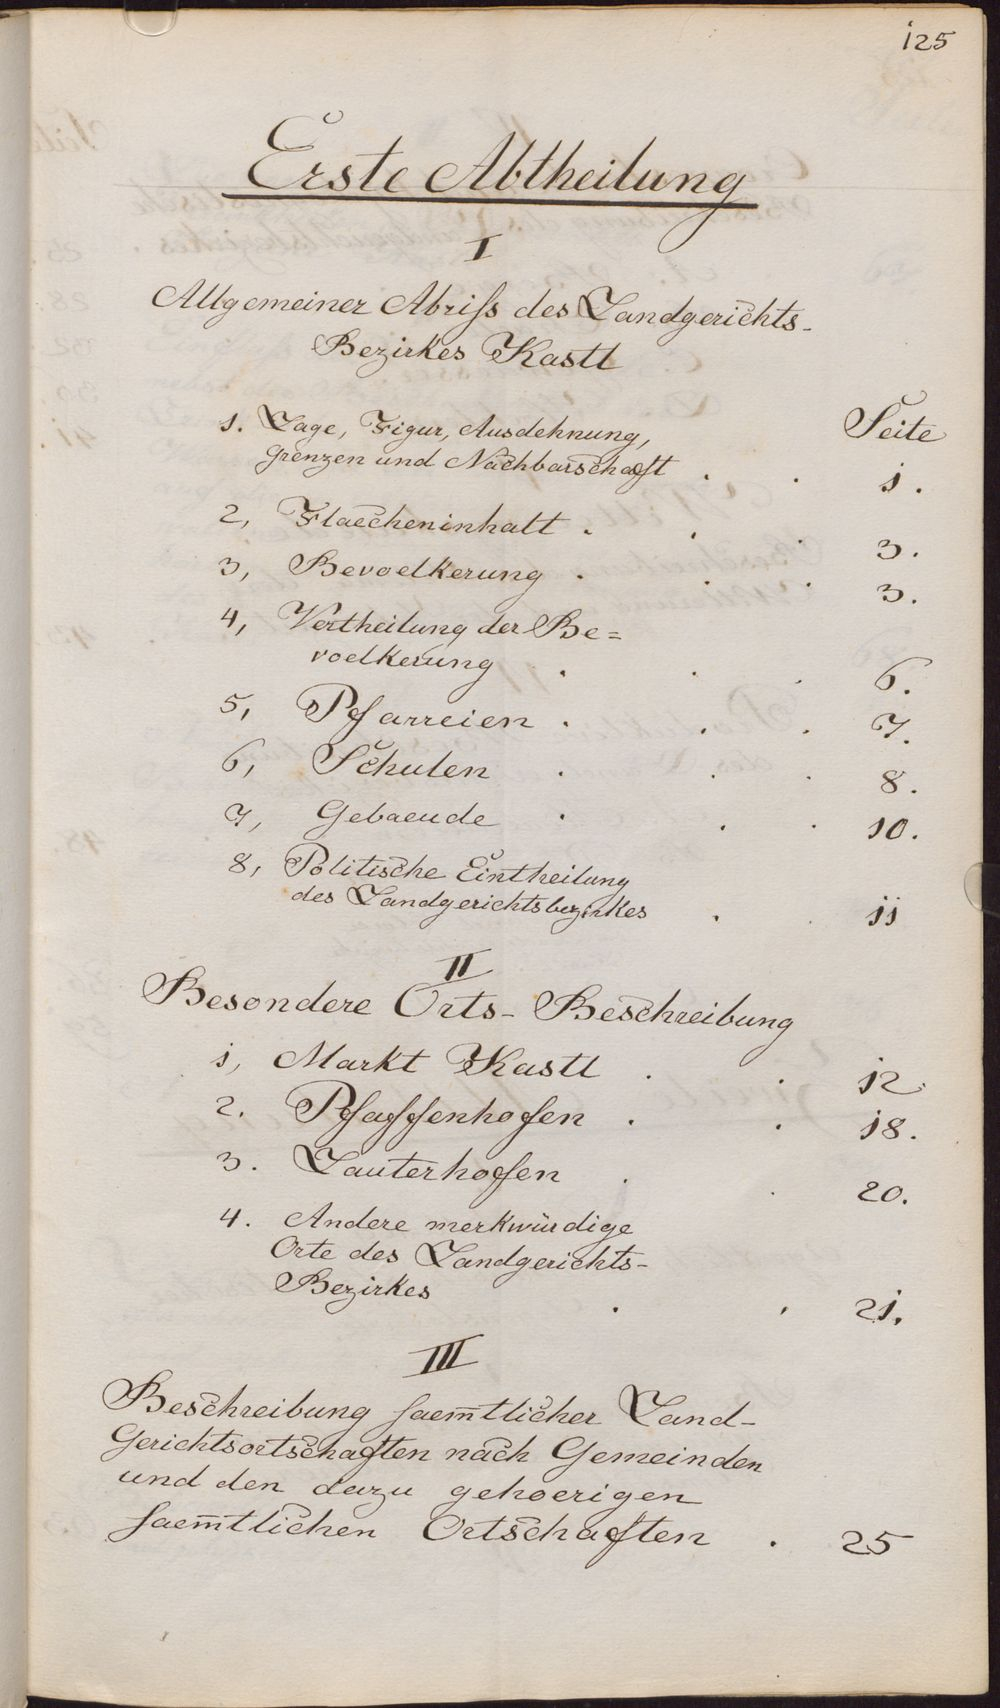 125
Erste Abtheilung
I
Allgemeiner Abriss des Landgerichts-
Bezirkes Kastl
Seite
1. Lage, Figur, Ausdehnung,
grenzen und Nachbarschaft . . 1.
2, Flaecheninhalt . . . 3.
3, Bevoelkerung . . . 3.
4, Vertheilung der Be=
voelkerung . . . 6.
5, Pfarreien . . . 7.
6, Schulen . . . 8.
7, Gebaeude . . . 10.
8, Politische Eintheilung
des Landgerichtsbezirkes . . 11
II
Besondere Orts-Beschreibung
1, Markt Kastl . . 12
2. Pfaffenhofen . . 18.
3. Lauterhofen . . 20.
4. Andere merkwürdige
Orte des Landgerichts-
Bezirkes . . 21.
III
Beschreibung saem̅tlicher Land-
Gerichtsortschaften nach Gemeinden
und den dazu gehoerigen
saem̅tlichen Ortschaften . 25